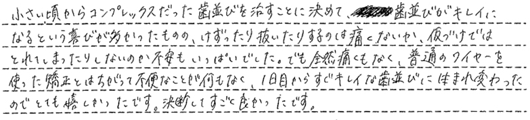 小さい頃からコンプレックスだった歯並びを治すことに決めて、歯並びがキレイに
なるという喜びが多かったものの、けずったり抜いたりするのは痛くないか、仮づけでは
とれてしまったりしないのか不安もいっぱいでした。でも全然痛くもなく、普通のワイヤーを
使った矯正とはちがって不便なことが何もなく、1日目からすぐキレイな歯並びに生まれ変わった
のでとても嬉しかったです。決断してすごく良かったです。